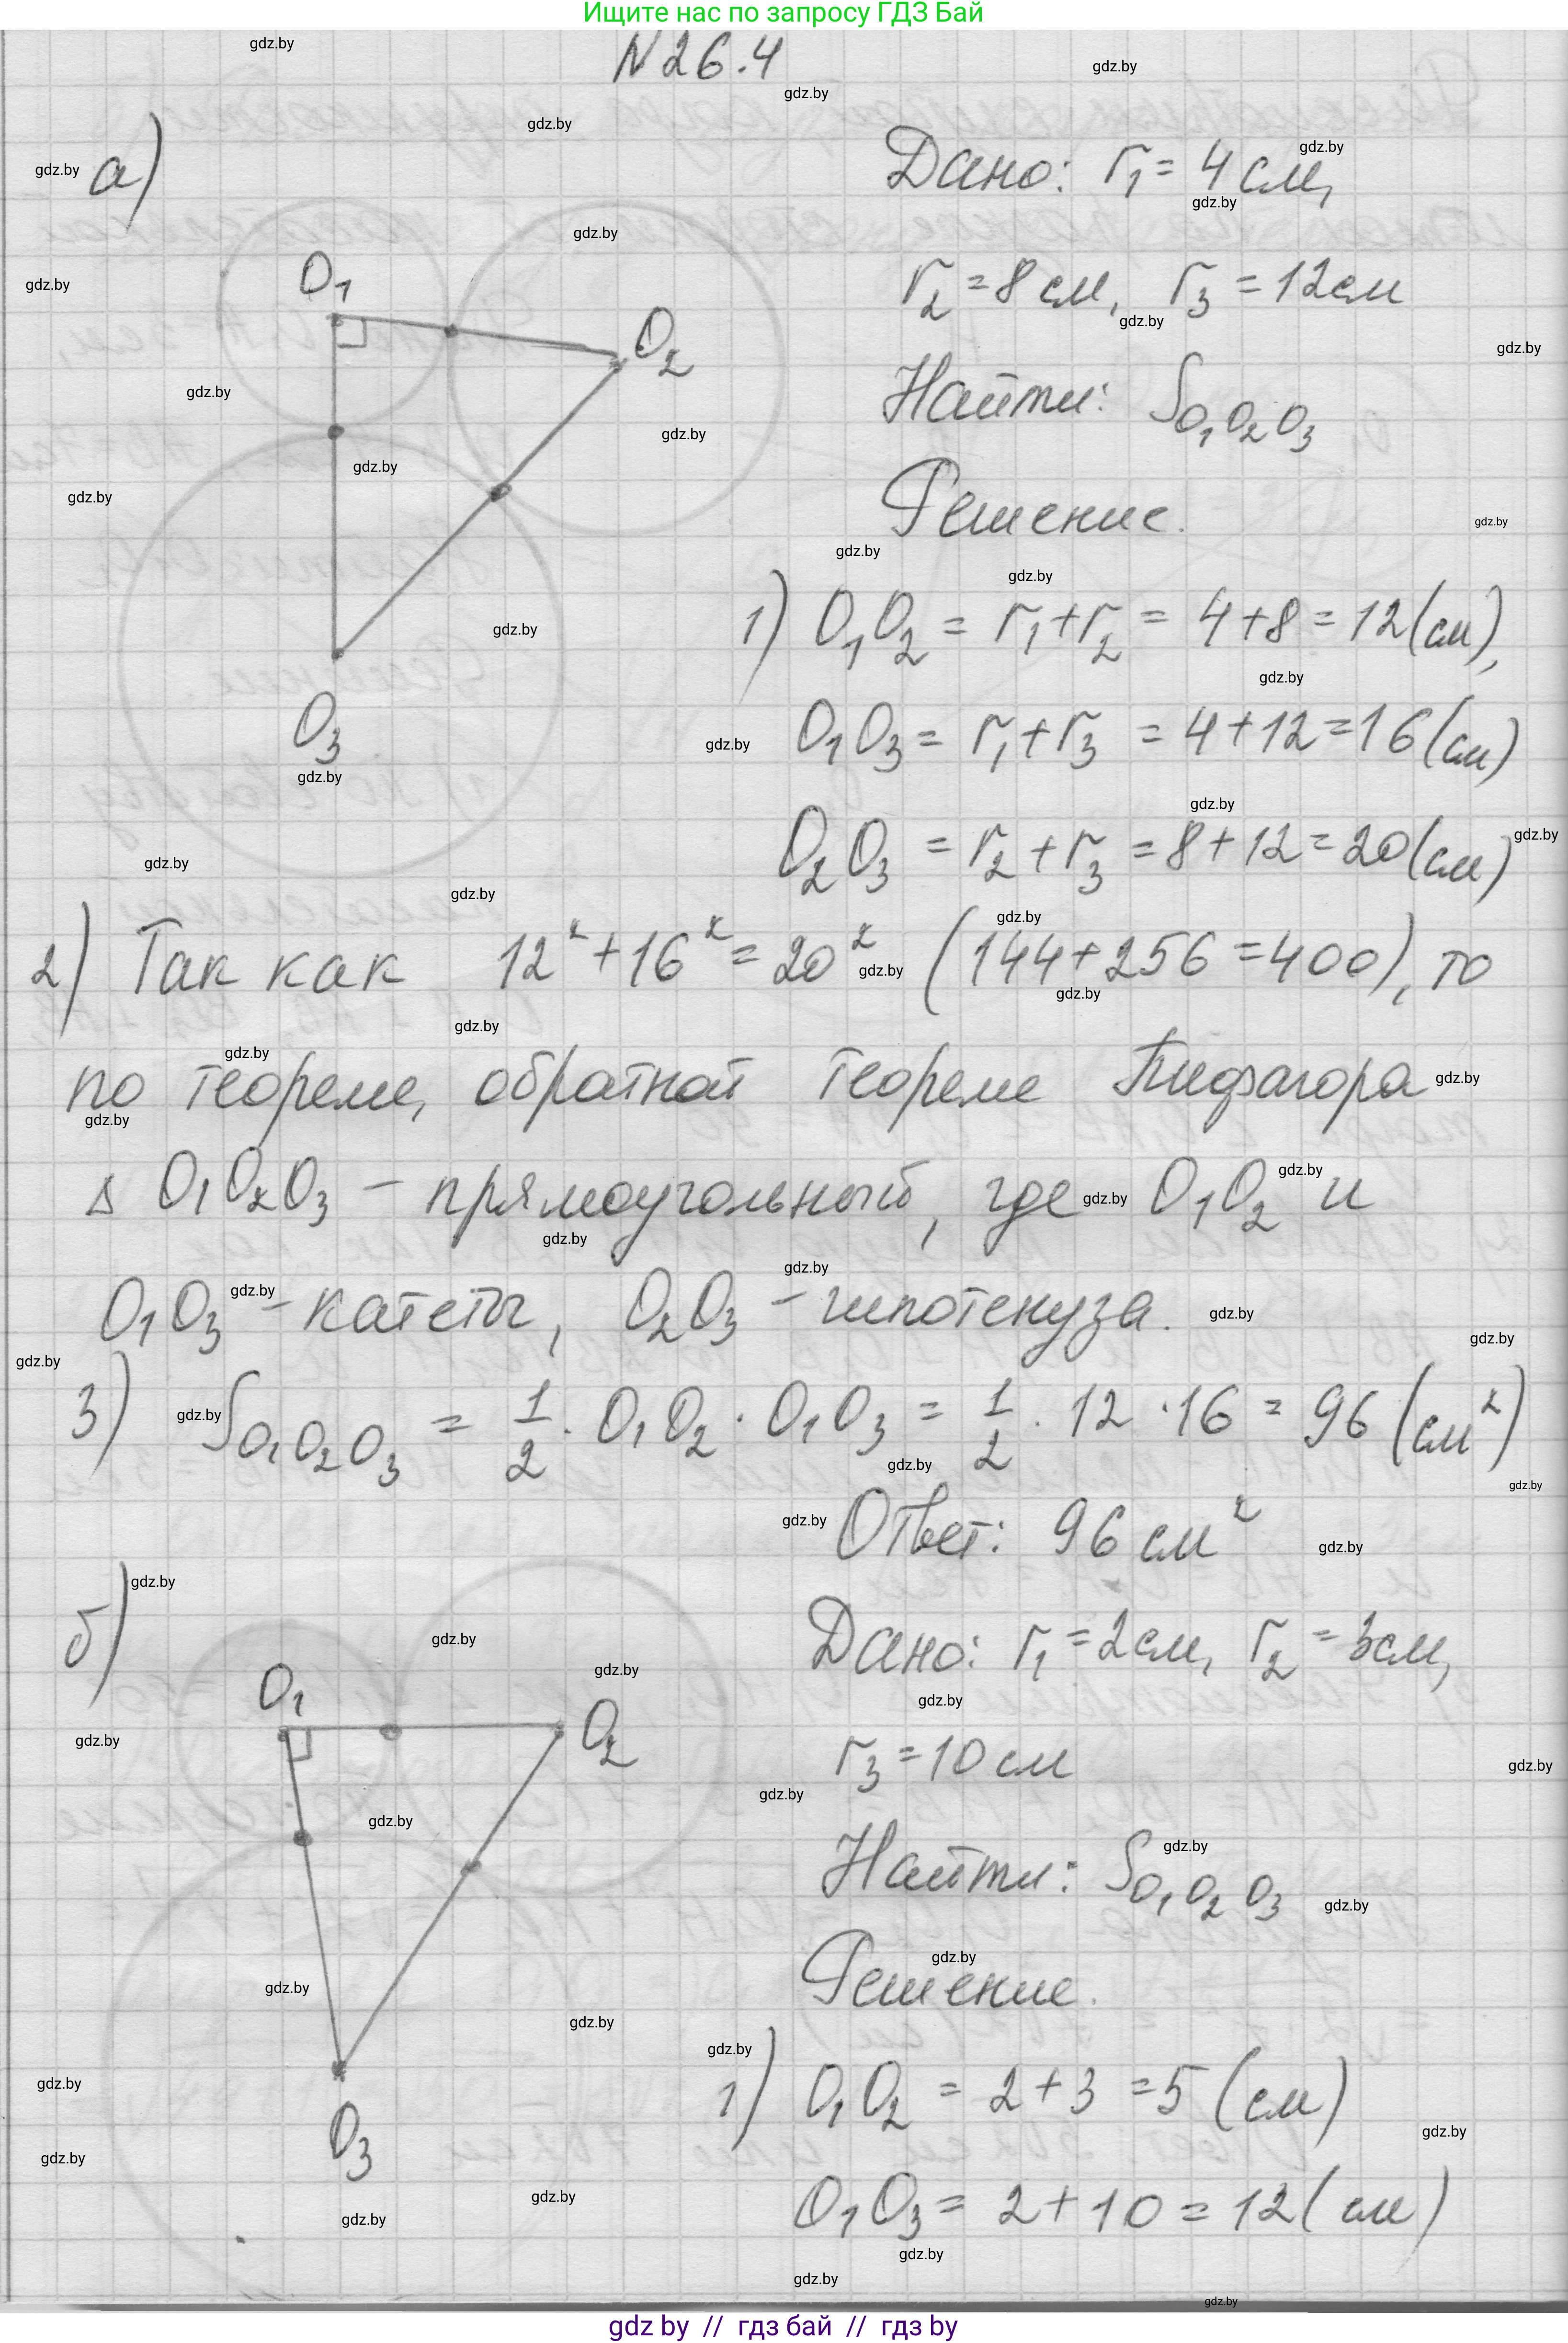 Ищите нас по запросу ГДЗ Бай
N 26.4
а)
Дано: r₁ = 4 см,
r₂ = 8 см, r₃ = 12 см
Найти: S O₁O₂O₃
Решение.
O₁
O₂
O₃
1) O₁O₂ = r₁ + r₂ = 4 + 8 = 12 (см),
O₁O₃ = r₁ + r₃ = 4 + 12 = 16 (см)
O₂O₃ = r₂ + r₃ = 8 + 12 = 20 (см)
2) Так как 12² + 16² = 20² (144 + 256 = 400), то
по теореме, обратной теореме Пифагора
Δ O₁O₂O₃ - прямоугольный, где O₁O₂ и
O₁O₃ - катеты, O₂O₃ - гипотенуза.
3) S O₁O₂O₃ = 1/2 · O₁O₂ · O₁O₃ = 1/2 · 12 · 16 = 96 (см²)
Ответ: 96 см²
б)
Дано: r₁ = 2 см, r₂ = 3 см,
r₃ = 10 см
Найти: S O₁O₂O₃
Решение.
O₁
O₂
O₃
1) O₁O₂ = 2 + 3 = 5 (см)
O₁O₃ = 2 + 10 = 12 (см)
gdz.by
gdz by // гдз бай // гдз by